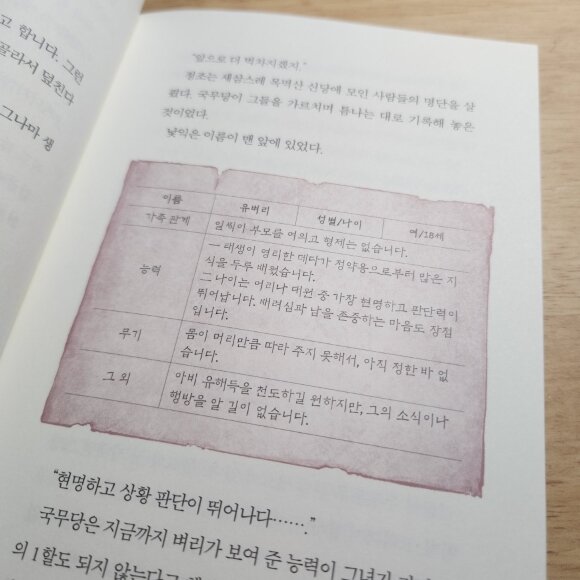 고 합니다. 그런
골라서 덮친다
그나마 생
"앞으로 더 벅차지겠지."
정초는 새삼스레 목멱산 신당에 모인 사람들의 명단을 살
폈다. 국무당이 그들을 가르치며 틈나는 대로 기록해 놓은
것이었다.
낯익은 이름이 맨 앞에 있었다.
이름 유버리 성별/나이 여/18세
가족 관계 일찍이 부모를 여의고 형제는 없습니다.
능력 — 태생이 영리한 데다가 정약용으로부터 많은 지
식을 두루 배웠습니다.
그 나이는 어리나 대원 중 가장 현명하고 판단력이
뛰어납니다. 배려심과 남을 존중하는 마음도 장점
입니다.
무기 몸이 머리만큼 따라 주지 못해서, 아직 정한 바 없
습니다.
그 외 아비 유해득을 천도하길 원하지만, 그의 소식이나
행방을 알 길이 없습니다.
"현명하고 상황 판단이 뛰어나다……."
국무당은 지금까지 벼리가 보여 준 능력이 그녀가
의 1할도 되지 않는다고